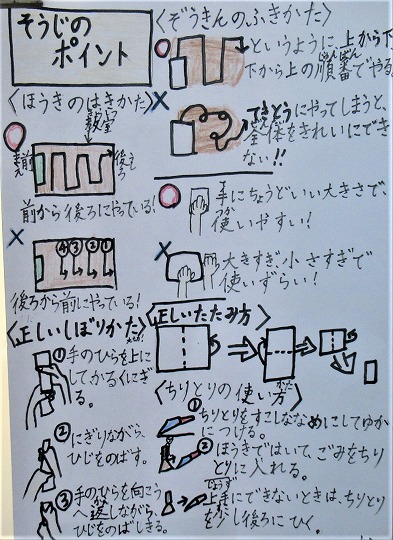 そうじの
ポイント
〈ほうきのはきかた〉
教室
前
まえ
後ろ
うしろ
前から後ろにやっている!
④③②①
後ろから前にやっている!
〈正しいしぼりかた〉
①手のひらを上に
してかるくにぎ
る。
②にぎりながら、
ひじをのばす。
③手のひらを向こう
へ返しながら、
ひじをのばしきる。
〈ぞうきんのふきかた〉
というように、上から下、
下から上の順番でやる。
じゅんばん
てきとうにやってしまうと、
全体をきれいにでき
ない!!
手にちょうどいい大きさで、
つか
使いやすい!
大きすぎ、小さすぎで
使いずらい!
〈正しいたたみ方〉
〈ちりとりの使い方〉
かた
①ちりとりをすこしななめにしてゆか
につける。
②ほうきではいて、ごみをちり
とりに入れる。
じょうず
上手にできないときは、ちりとり
を少し後ろにひく。